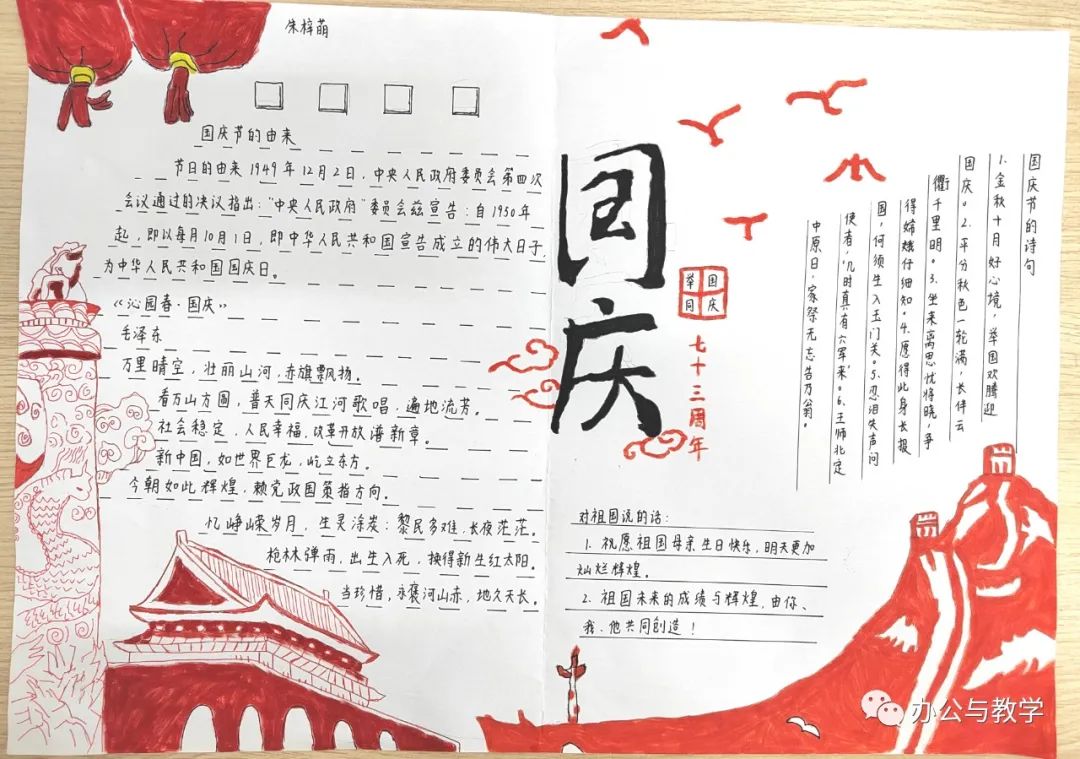 朱梓萌
国庆节的由来
节日的由来1949年12月2日，中央人民政府委员会第四次
会议通过的决议指出：“中央人民政府”委员会兹宣告：自1950年
起，即以每月10月1日，即中华人民共和国宣告成立的伟大日子，
为中华人民共和国国庆日。
《沁园春·国庆》
毛泽东
万里晴空，壮丽山河，赤旗飘扬。
看万山方圆，普天同庆江河歌唱，遍地流芳。
社会稳定，人民幸福，改革开放谱新章。
新中国，如世界巨龙，屹立东方。
今朝如此辉煌，赖党政国策指方向。
忆峥嵘岁月，生灵涂炭：黎民多难，长夜茫茫。
枪林弹雨，出生入死，换得新生红太阳。
当珍惜，永褒河山赤，地久天长。
国庆
举国
同庆
七十三周年
国庆节的诗句
1.金秋十月好心境，举国欢腾迎
国庆。2.平分秋色一轮满，长伴云
衢千里明。3.坐来离思忧将晓，争
得嫦娥仔细知。4.愿得此身长报
国，何须生入玉门关。5.忍泪失声问
使者，几时真有六军来。6.王师北定
中原日，家祭无忘告乃翁。
对祖国说的话：
1.祝愿祖国母亲生日快乐，明天更加
灿烂辉煌。
2.祖国未来的成绩与辉煌，由你、
我、他共同创造！
办公与教学